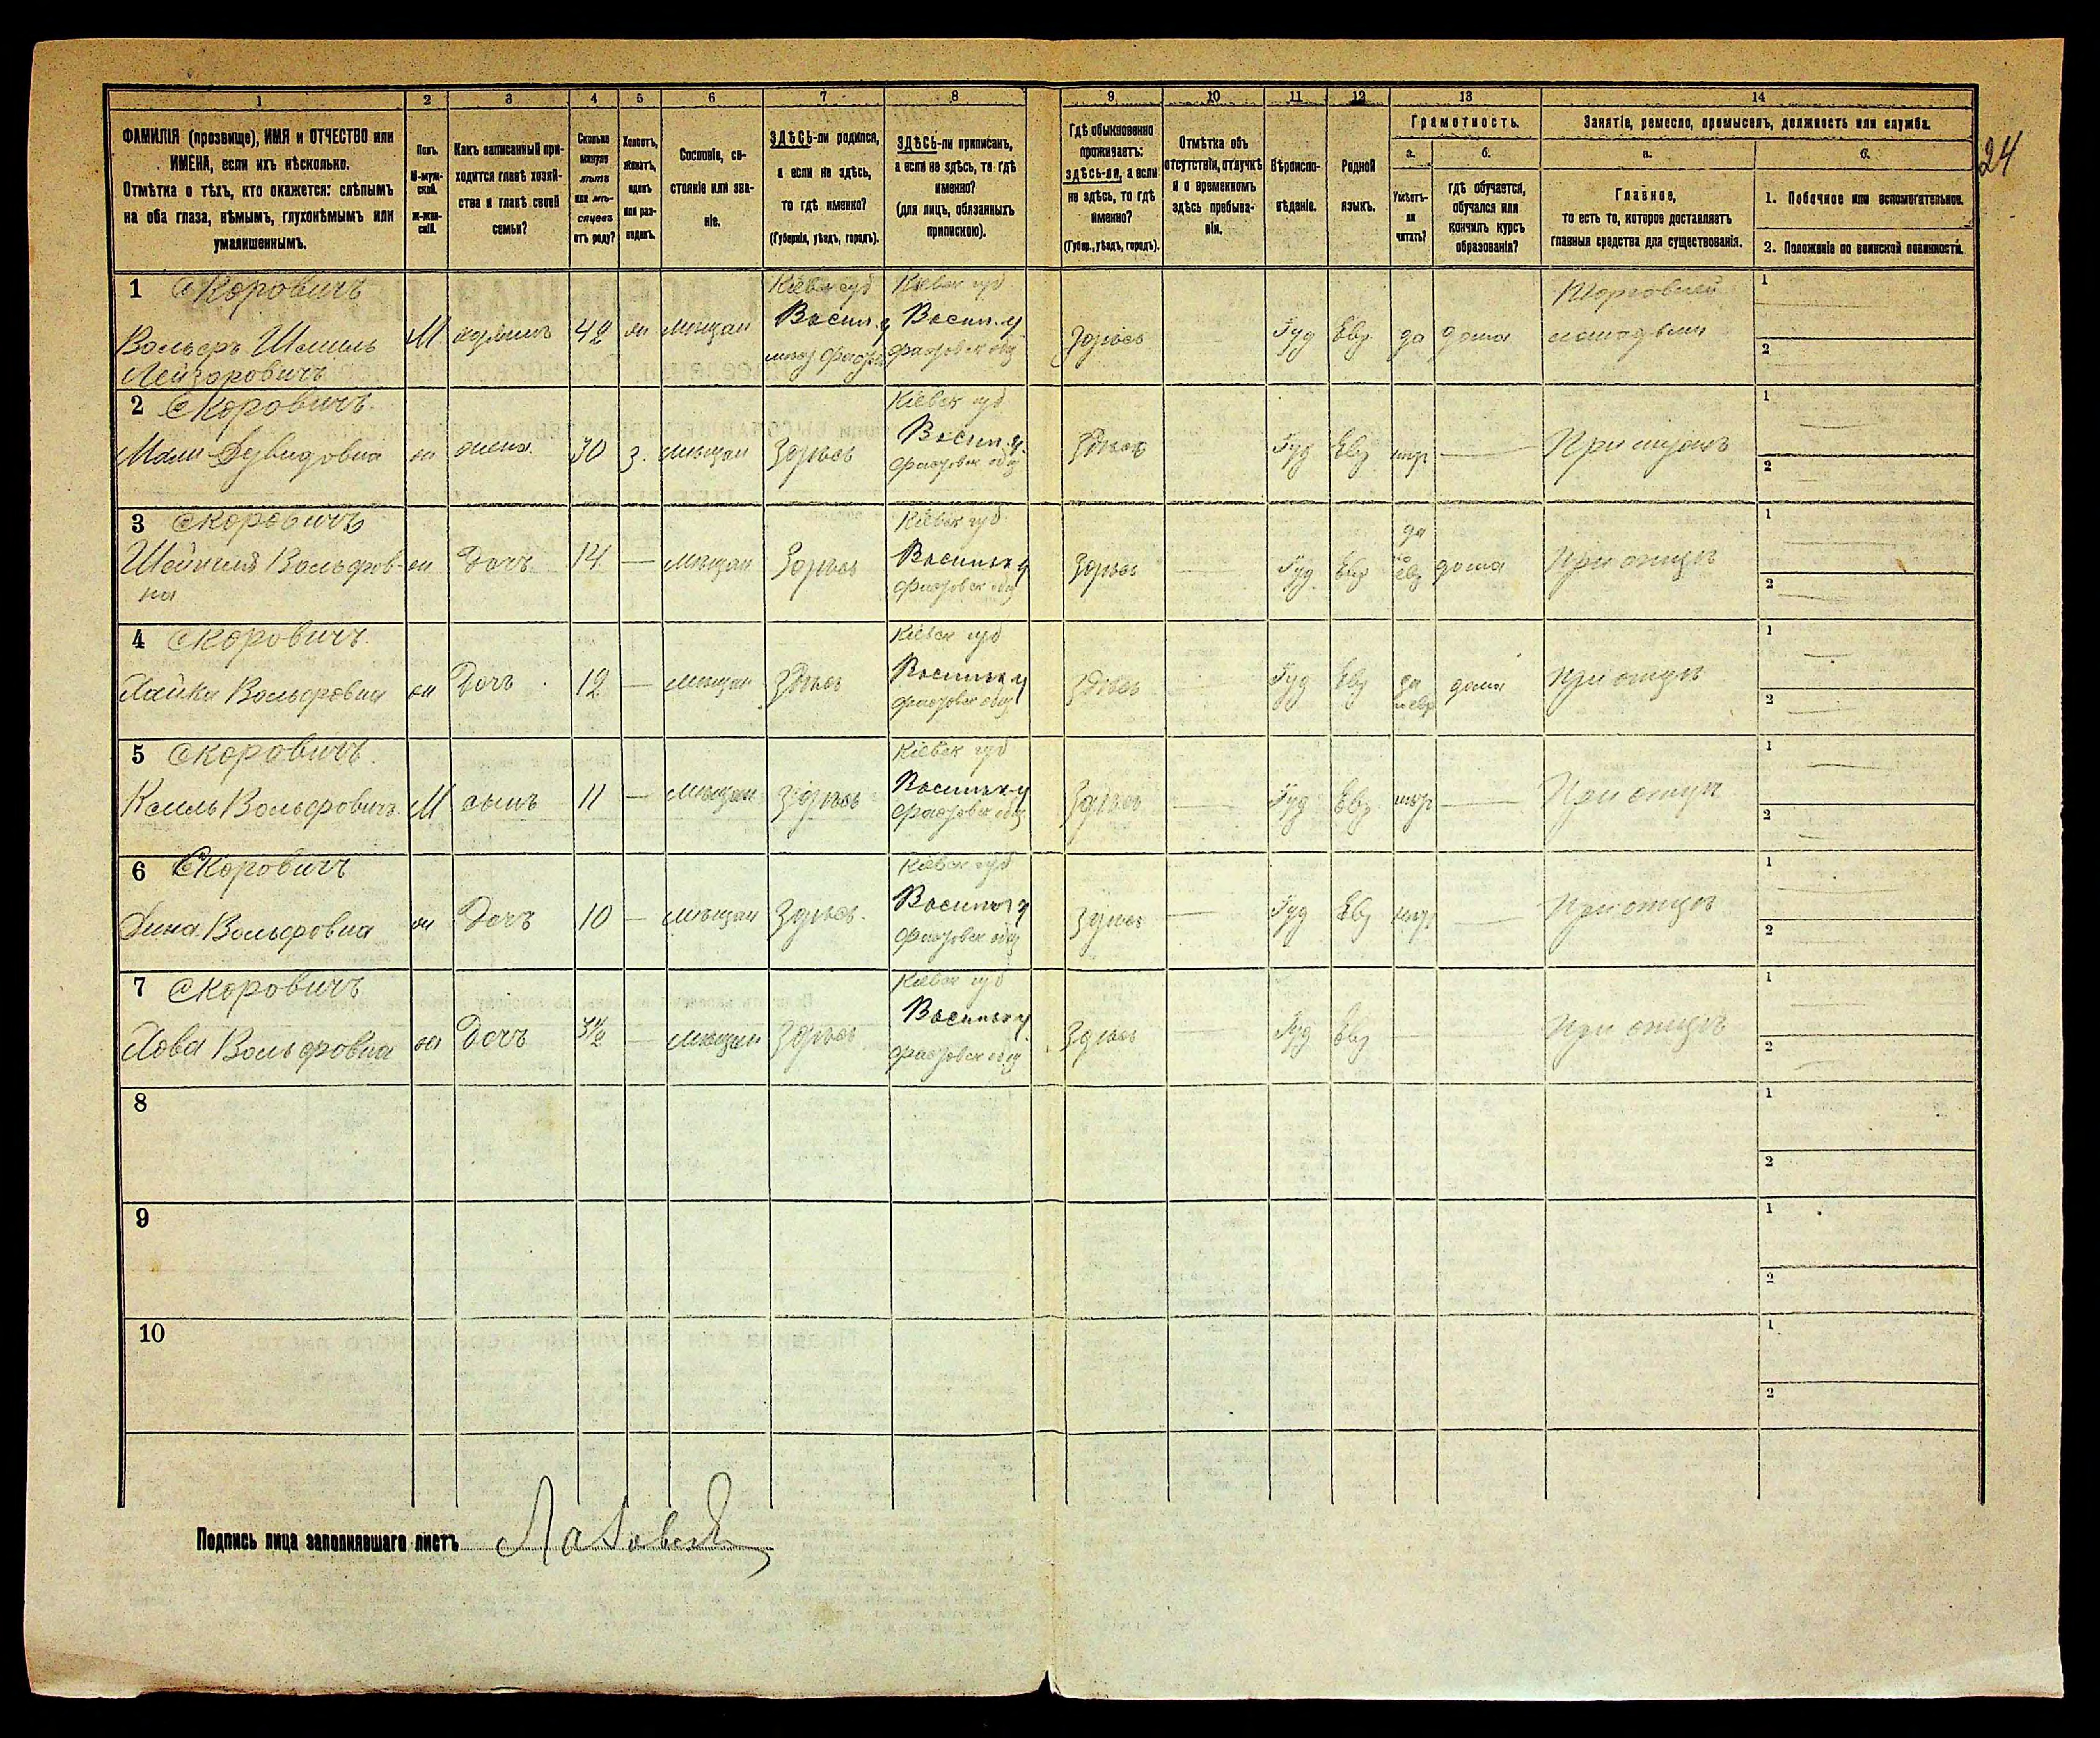 24
1 2 3 4 5 6 7 8 9 10 11 12 13 14
ФАМИЛІЯ (прозвище), ИМЯ и ОТЧЕСТВО или
ИМЕНА, если ихъ нѣсколько.
Отмѣтка о тѣхъ, кто окажется: слѣпымъ
на оба глаза, нѣмымъ, глухонѣмымъ или
умалишеннымъ.
Полъ.
М-муж-
ской.
ж-жен-
скій.
Какъ записанный при-
ходится главѣ хозяй-
ства и главѣ своей
семьи?
Сколько
минуло
лѣтъ
или мѣ-
сяцевъ
отъ роду?
Холостъ,
женатъ,
вдовъ
или раз-
веденъ.
Сословіе, со-
стояніе или зва-
ніе.
ЗДѢСЬ-ли родился,
а если не здѣсь,
то гдѣ именно?
(Губернія, уѣздъ, городъ).
ЗДѢСЬ-ли приписанъ,
а если не здѣсь, то гдѣ
именно?
(для лицъ, обязанныхъ
припискою).
Гдѣ обыкновенно
проживаетъ:
здѣсь-ли, а если
не здѣсь, то гдѣ
именно?
(Губер., уѣздъ, городъ).
Отмѣтка объ
отсутствіи, отлучкѣ
и о временномъ
здѣсь пребыва-
ніи.
Вѣроиспо-
вѣданіе.
Родной
языкъ.
Грамотность.
а.
Умѣетъ-
ли
читать?
б.
гдѣ обучается,
обучался или
кончилъ курсъ
образованія?
Занятіе, ремесло, промыселъ, должность или служба.
а.
Главное,
то есть то, которое доставляетъ
главныя средства для существованія.
б.
1. Побочное или вспомогательное.
2. Положеніе по воинской повинности.
1 Скоровичъ Кіевск губ Кіевск губ Торговлей 1
Вольфъ Шмиль М 42 мѣщан Васил. у Васил. у Здѣсь Іуд Евр да дома лошадьми
Лейзоровичъ 2
2 Скоровичъ Кіевск губ 1
Мали Дувидовна жена 30 з. мѣщан Здѣсь Васил. у Здѣсь Іуд Евр При мужѣ
Фастовск общ 2
3 Скоровичъ Кіевск губ да 1
Вольфов- Дочь 14 — мѣщан Здѣсь Васильк у Здѣсь Іуд Евр дома При отцѣ
на Фастовск общ 2
4 Скоровичъ Кіевск губ 1
Хайка Вольфовна Дочь 12 — мѣщан Здѣсь Васильк у Здѣсь Іуд Евр да дома При отцѣ
Фастовск общ 2
5 Скоровичъ Кіевск губ 1
Вольфовичъ М сынъ 11 — мѣщан Здѣсь Васильк у Здѣсь Іуд Евр При отцѣ
Фастовск общ 2
6 Скоровичъ Кіевск губ 1
Дина Вольфовна Дочь 10 — мѣщан Здѣсь Васильк у Здѣсь Іуд Евр При отцѣ
Фастовск общ 2
7 Скоровичъ Кіевск губ 1
Хова Вольфовна Дочь 3½ — мѣщан Здѣсь Васильк у Здѣсь Іуд Евр При отцѣ
Фастовск общ 2
8 1
2
9 1
2
10 1
2
Подпись лица заполнявшаго листъ